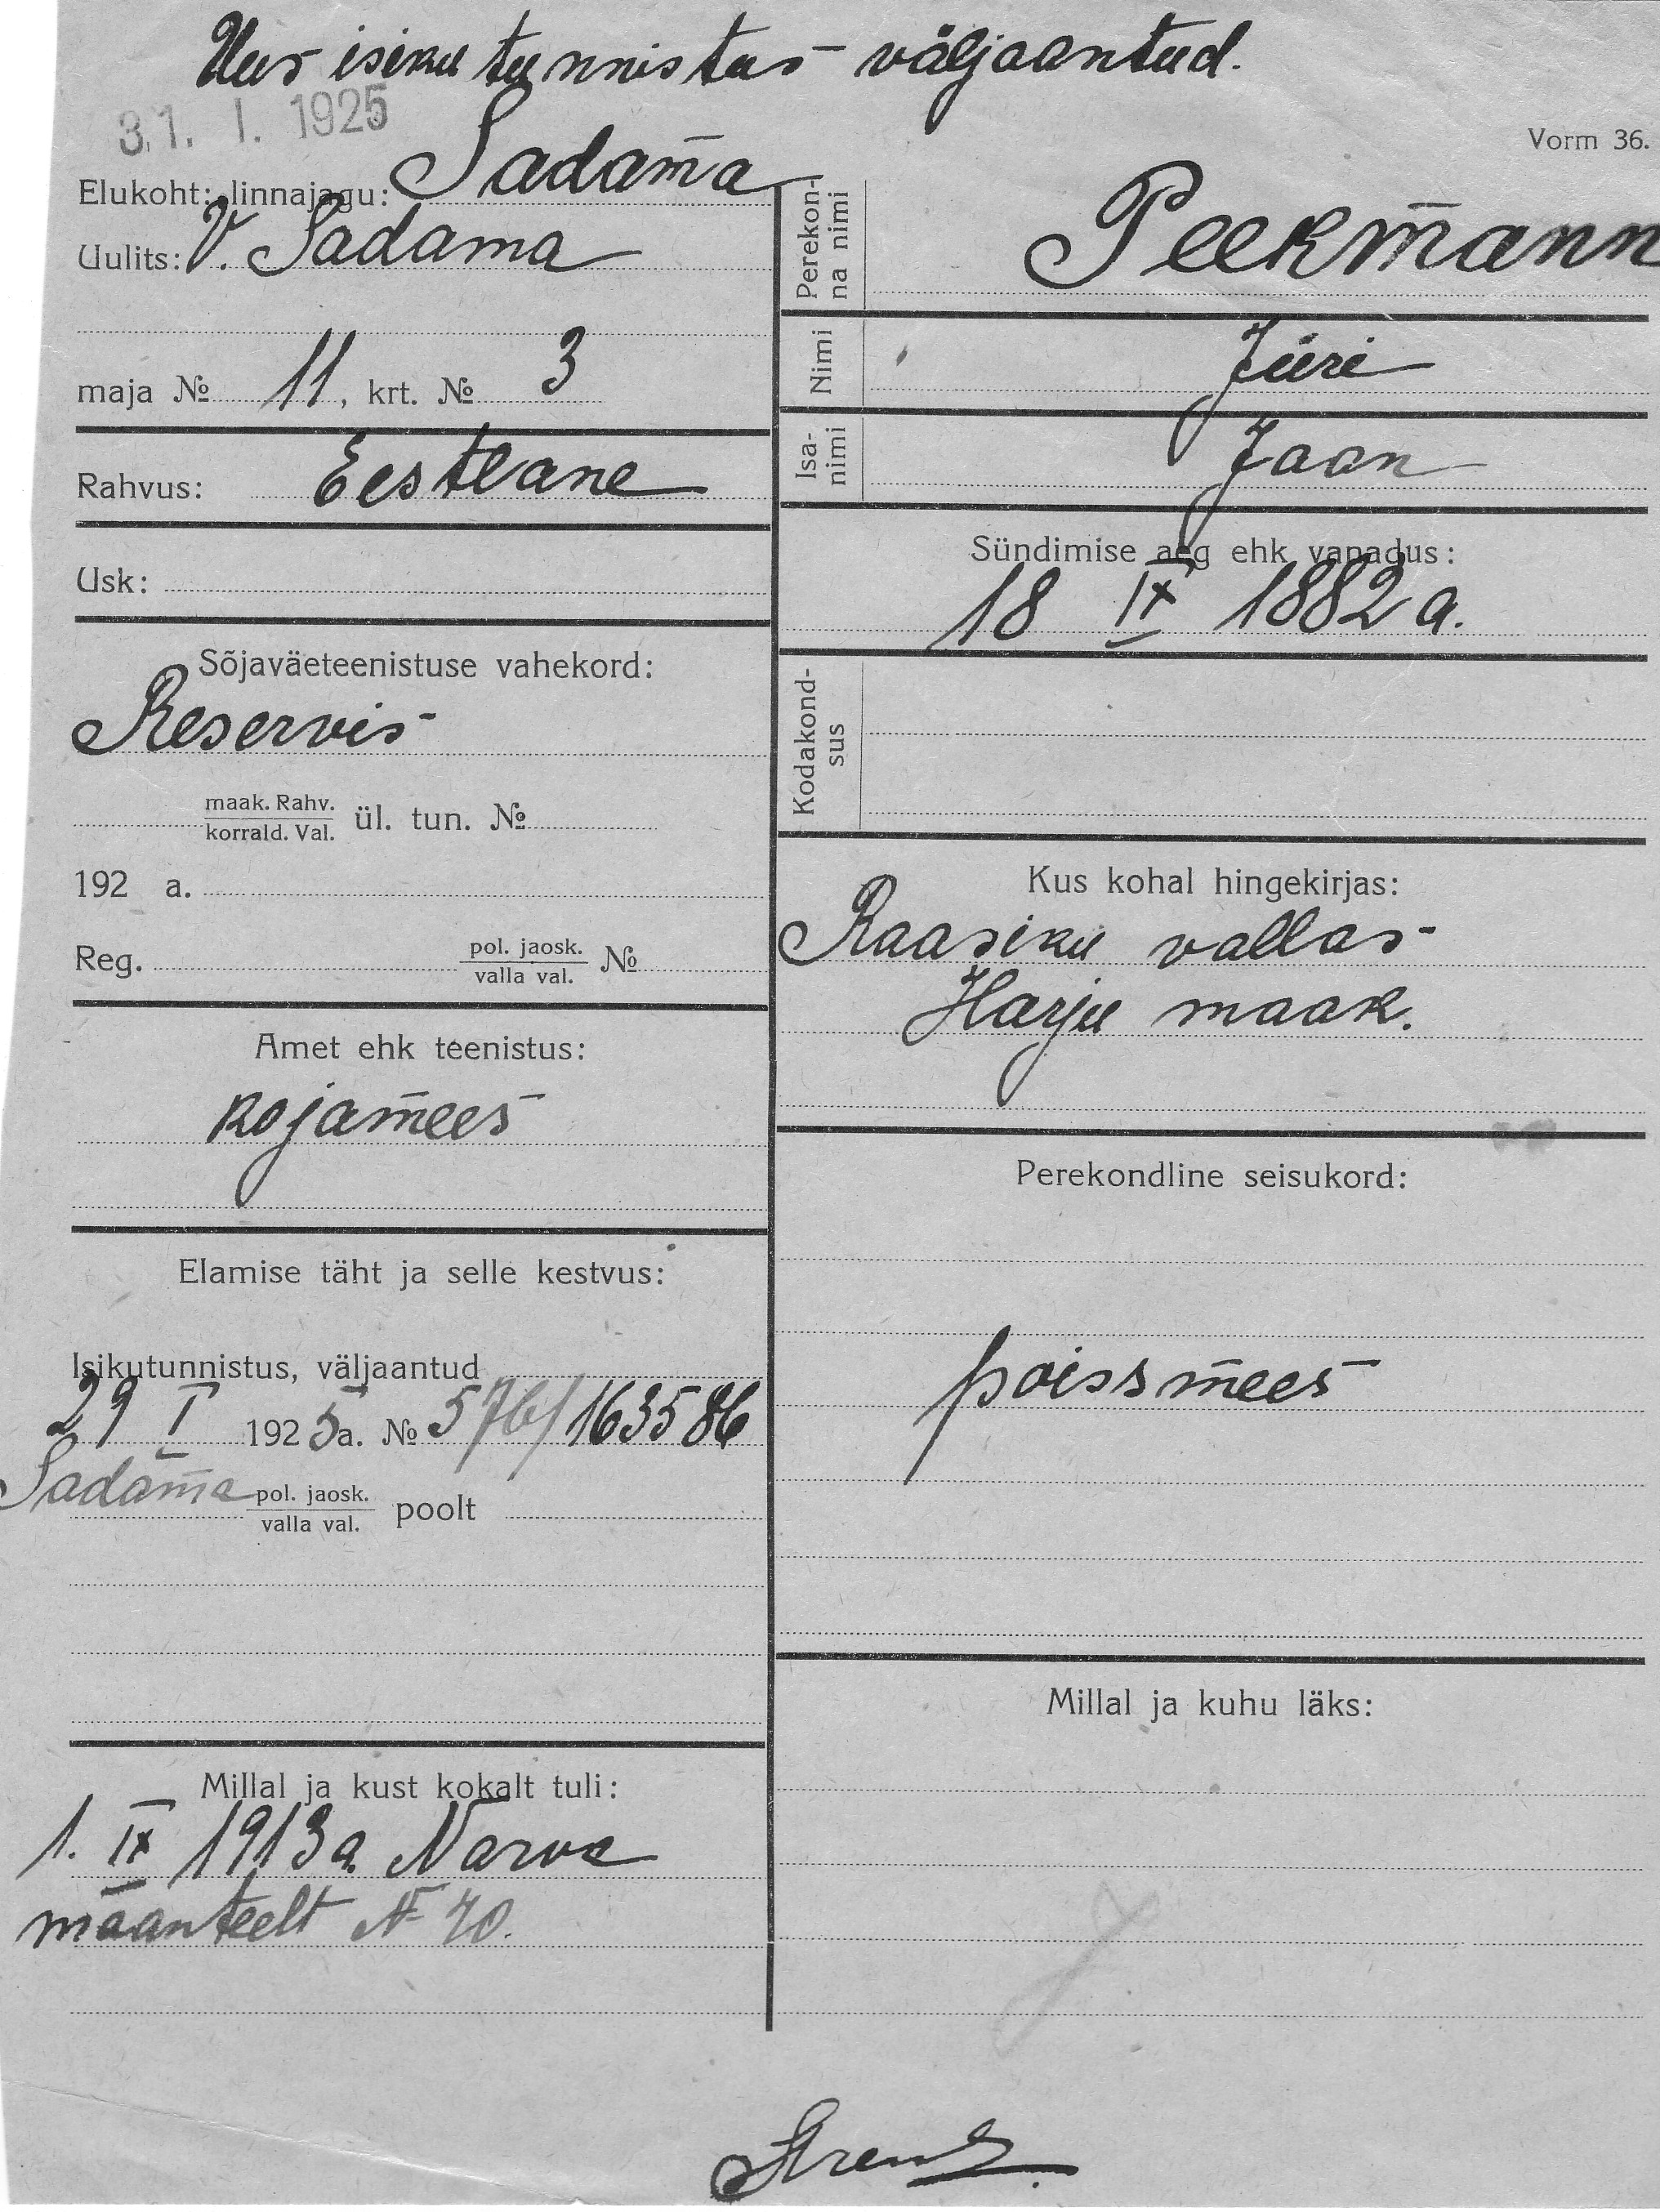 Uus isiku tunnistus väljaantud.
31. I. 1925
Vorm 36.
Elukoht: linnajagu: Sadama
Uulits: V. Sadama
maja № 11, krt. № 3
Rahvus: Eestlane
Usk:
Sõjaväeteenistuse vahekord:
Reservis
maak. Rahv.
korrald. Val. ül. tun. №
192 a.
Reg. pol. jaosk.
valla val. №
Amet ehk teenistus:
kojamees
Elamise täht ja selle kestvus:
Isikutunnistus, väljaantud
29 I 1925a. № 576/163586
Sadama pol. jaosk.
valla val. poolt
Millal ja kust kokalt tuli:
1. IX 1913 a. Narva
maanteelt № 40.
Perekon-
na nimi
Peekmann
Nimi Jüri
Isa-
nimi
Jaan
Sündimise aeg ehk vanadus:
18 IX 1882 a.
Kodakond-
sus
Kus kohal hingekirjas:
Raasiku vallas
Harju maak.
Perekondline seisukord:
poissmees
Millal ja kuhu läks: